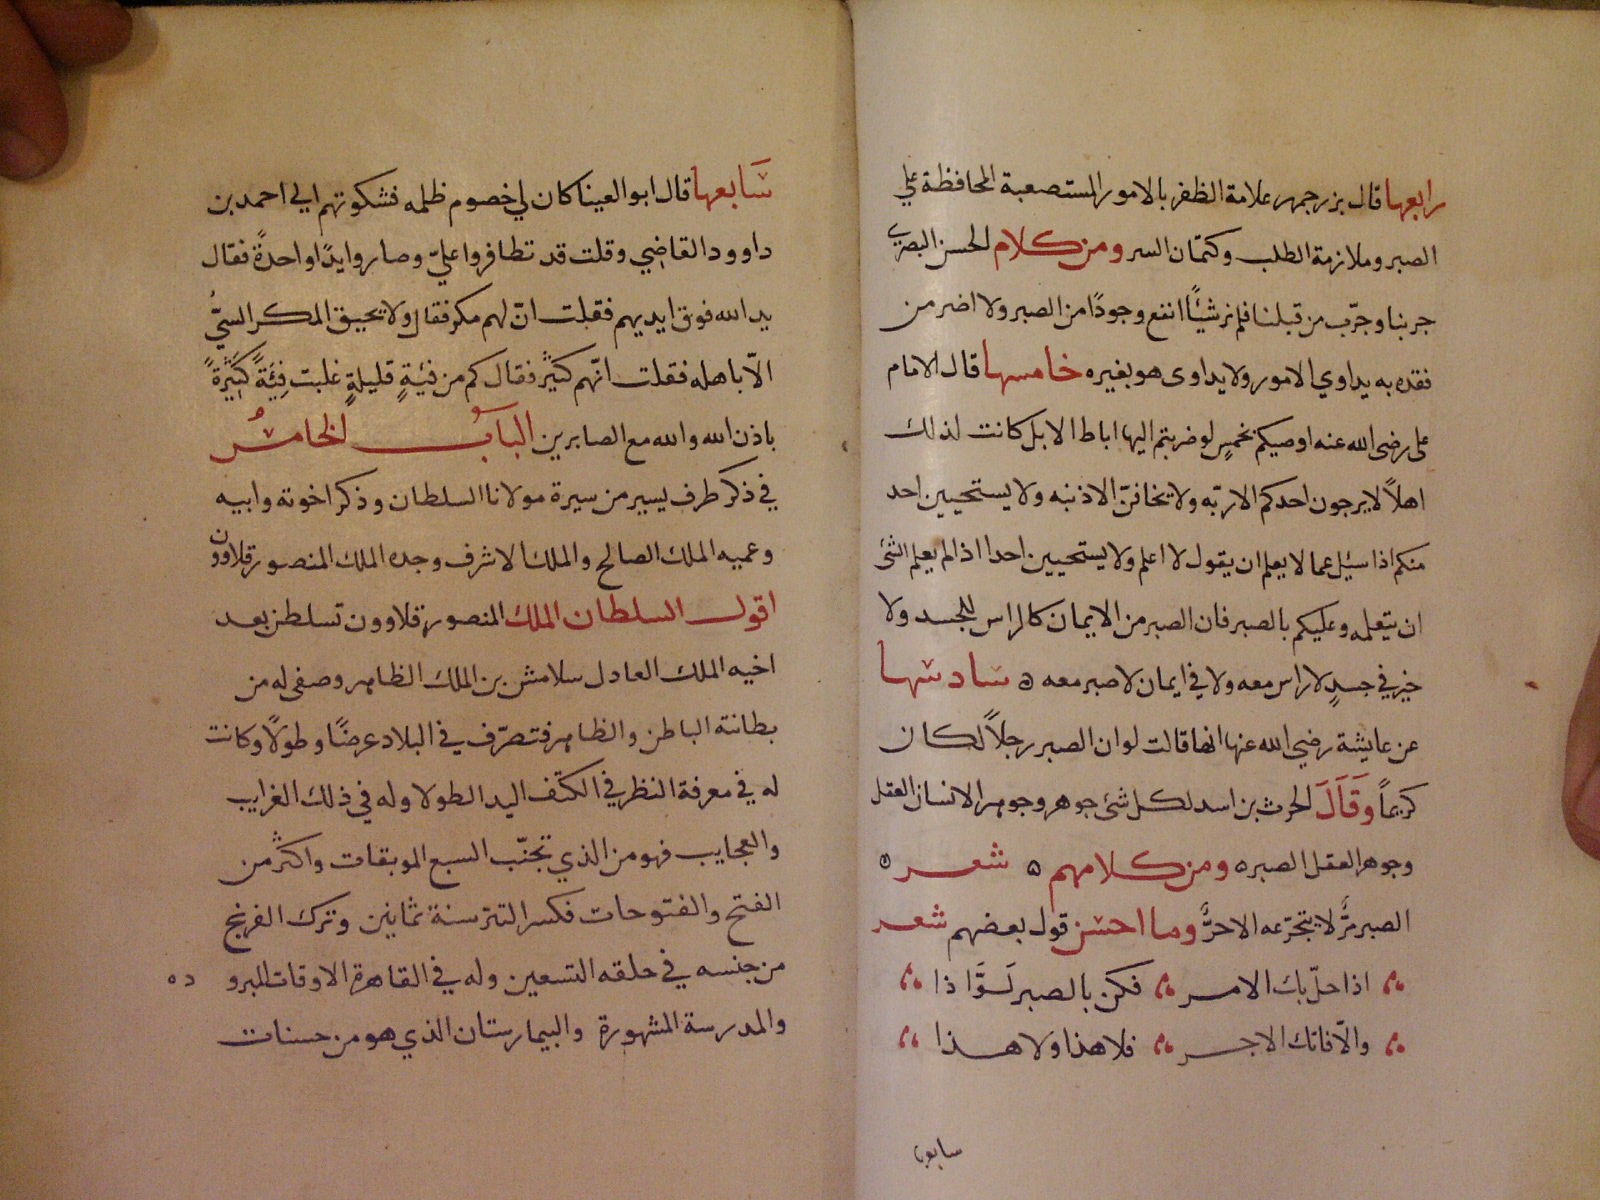 رابعها قال بزرجمهر علامة الظفر بالامور المستصعبة المحافظة علي
الصبر وملازمة الطلب وكتمان السر ومن كلام الحسن البصري
جربنا وجرّب من قبلنا فلم نر شيئًا انفع وجودًا من الصبر ولا اضر من
فقده به يداوي الامور ولا يداوى هو بغيره خامسها قال الامام
على رضى الله عنه اوصيكم بخمسٍ لو ضربتم اليها اباط الابل كانت لذلك
اهلاً لا يرجون احدكم الا ربّه ولا يخافنّ الا ذنبه ولا يستحيين احد
منكم اذا سيُل عما لا يعلم ان يقول لا اعلم ولا يستحيين احدا اذا لم يعلم الشئ
ان يتعلمه وعليكم بالصبر فان الصبر من الايمان كالراس للجسد ولا
خير في جسدٍ لا راس معه ولا في ايمان لا صبر معه ه سادسها
عن عايشة رضي الله عنها انها قالت لو ان الصبر رجلاً لكان
كريماً وَقَالَ الحرث بن اسد لكل شئ جوهر وجوهر الانسان العقل
وجوهر العقل الصبر ه ومن كلامهم ه شعر ه
الصبر مرٌّ لا يتجرّعه الا حرٌّ وما احسن قول بعضهم شعر
اذا حلّ بك الامر فكن بالصبر لَوَّاذا
والّا فاتك الاجر فلا هذا ولا هذا
سابعها
سابعها قال ابو العينا كان لي خصوم ظلمه فشكوتهم الي احمد بن
داوود القاضي وقلت قد تظافروا عليّ وصاروا يدًا واحدةً فقال
يد الله فوق ايديهم فقلت انّ لهم مكر فقال ولا يحيق المكر السيُّ
الّا باهله فقلت انّهم كثير فقال كم من فئةٍ قليلةٍ غلبت فِئَةً كَثِيرةً
باذن الله والله مع الصابرين البابُ الخامسُ
في ذكر طرف يسير من سيرة مولانا السلطان وذكر اخوته وابيه
وعميه الملك الصالح والملك الاشرف وجده الملك المنصور قلاوون
اقول السلطان الملك المنصور قلاوون تسلطن بعد
اخيه الملك العادل سلامش بن الملك الظاهر وصفى له من
بطانته الباطن والظاهر فتصرّف في البلاد عرضًا وطولًا وكانت
له في معرفة النظر في الكتف اليد الطولا وله في ذلك الغرايب
والعجايب فهو من الذي تجنّب السبع الموبقات واكثر من
الفتح والفتوحات فكسر التتر سنة ثمانين وترك الفرنج
من جنسه في حلقه التسعين وله في القاهرة الاوقات المبرو ده
والمدرسة المشهورة والبيمارستان الذي هو من حسنات